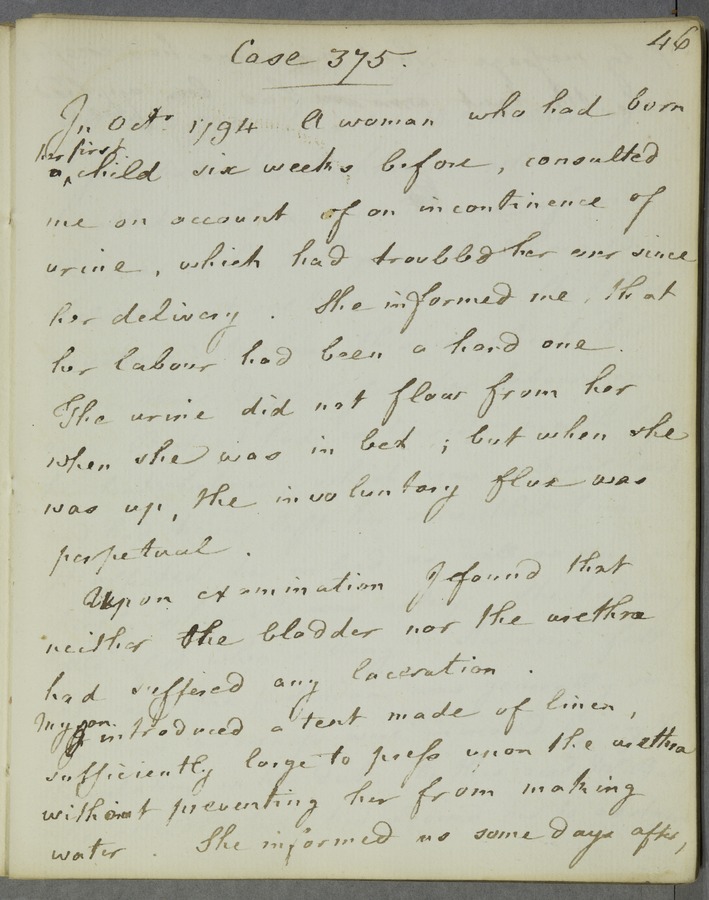 46
Case 375.
In Octr 1794 A woman who had born
her first
a child six weeks before, consulted
me on account of an incontinence of
urine, which had troubled her ever since
her delivery. She informed me, that
her labour had been a hard one.
The urine did not flow from her
when she was in bed; but when she
was up, the involuntary flux was
perpetual.
Upon examination I found that
neither the bladder nor the urethra
had suffered any laceration.
My son
I introduced a tent made of linen,
sufficiently large to press upon the urethra
without preventing her from making
water. She informed us some days after,